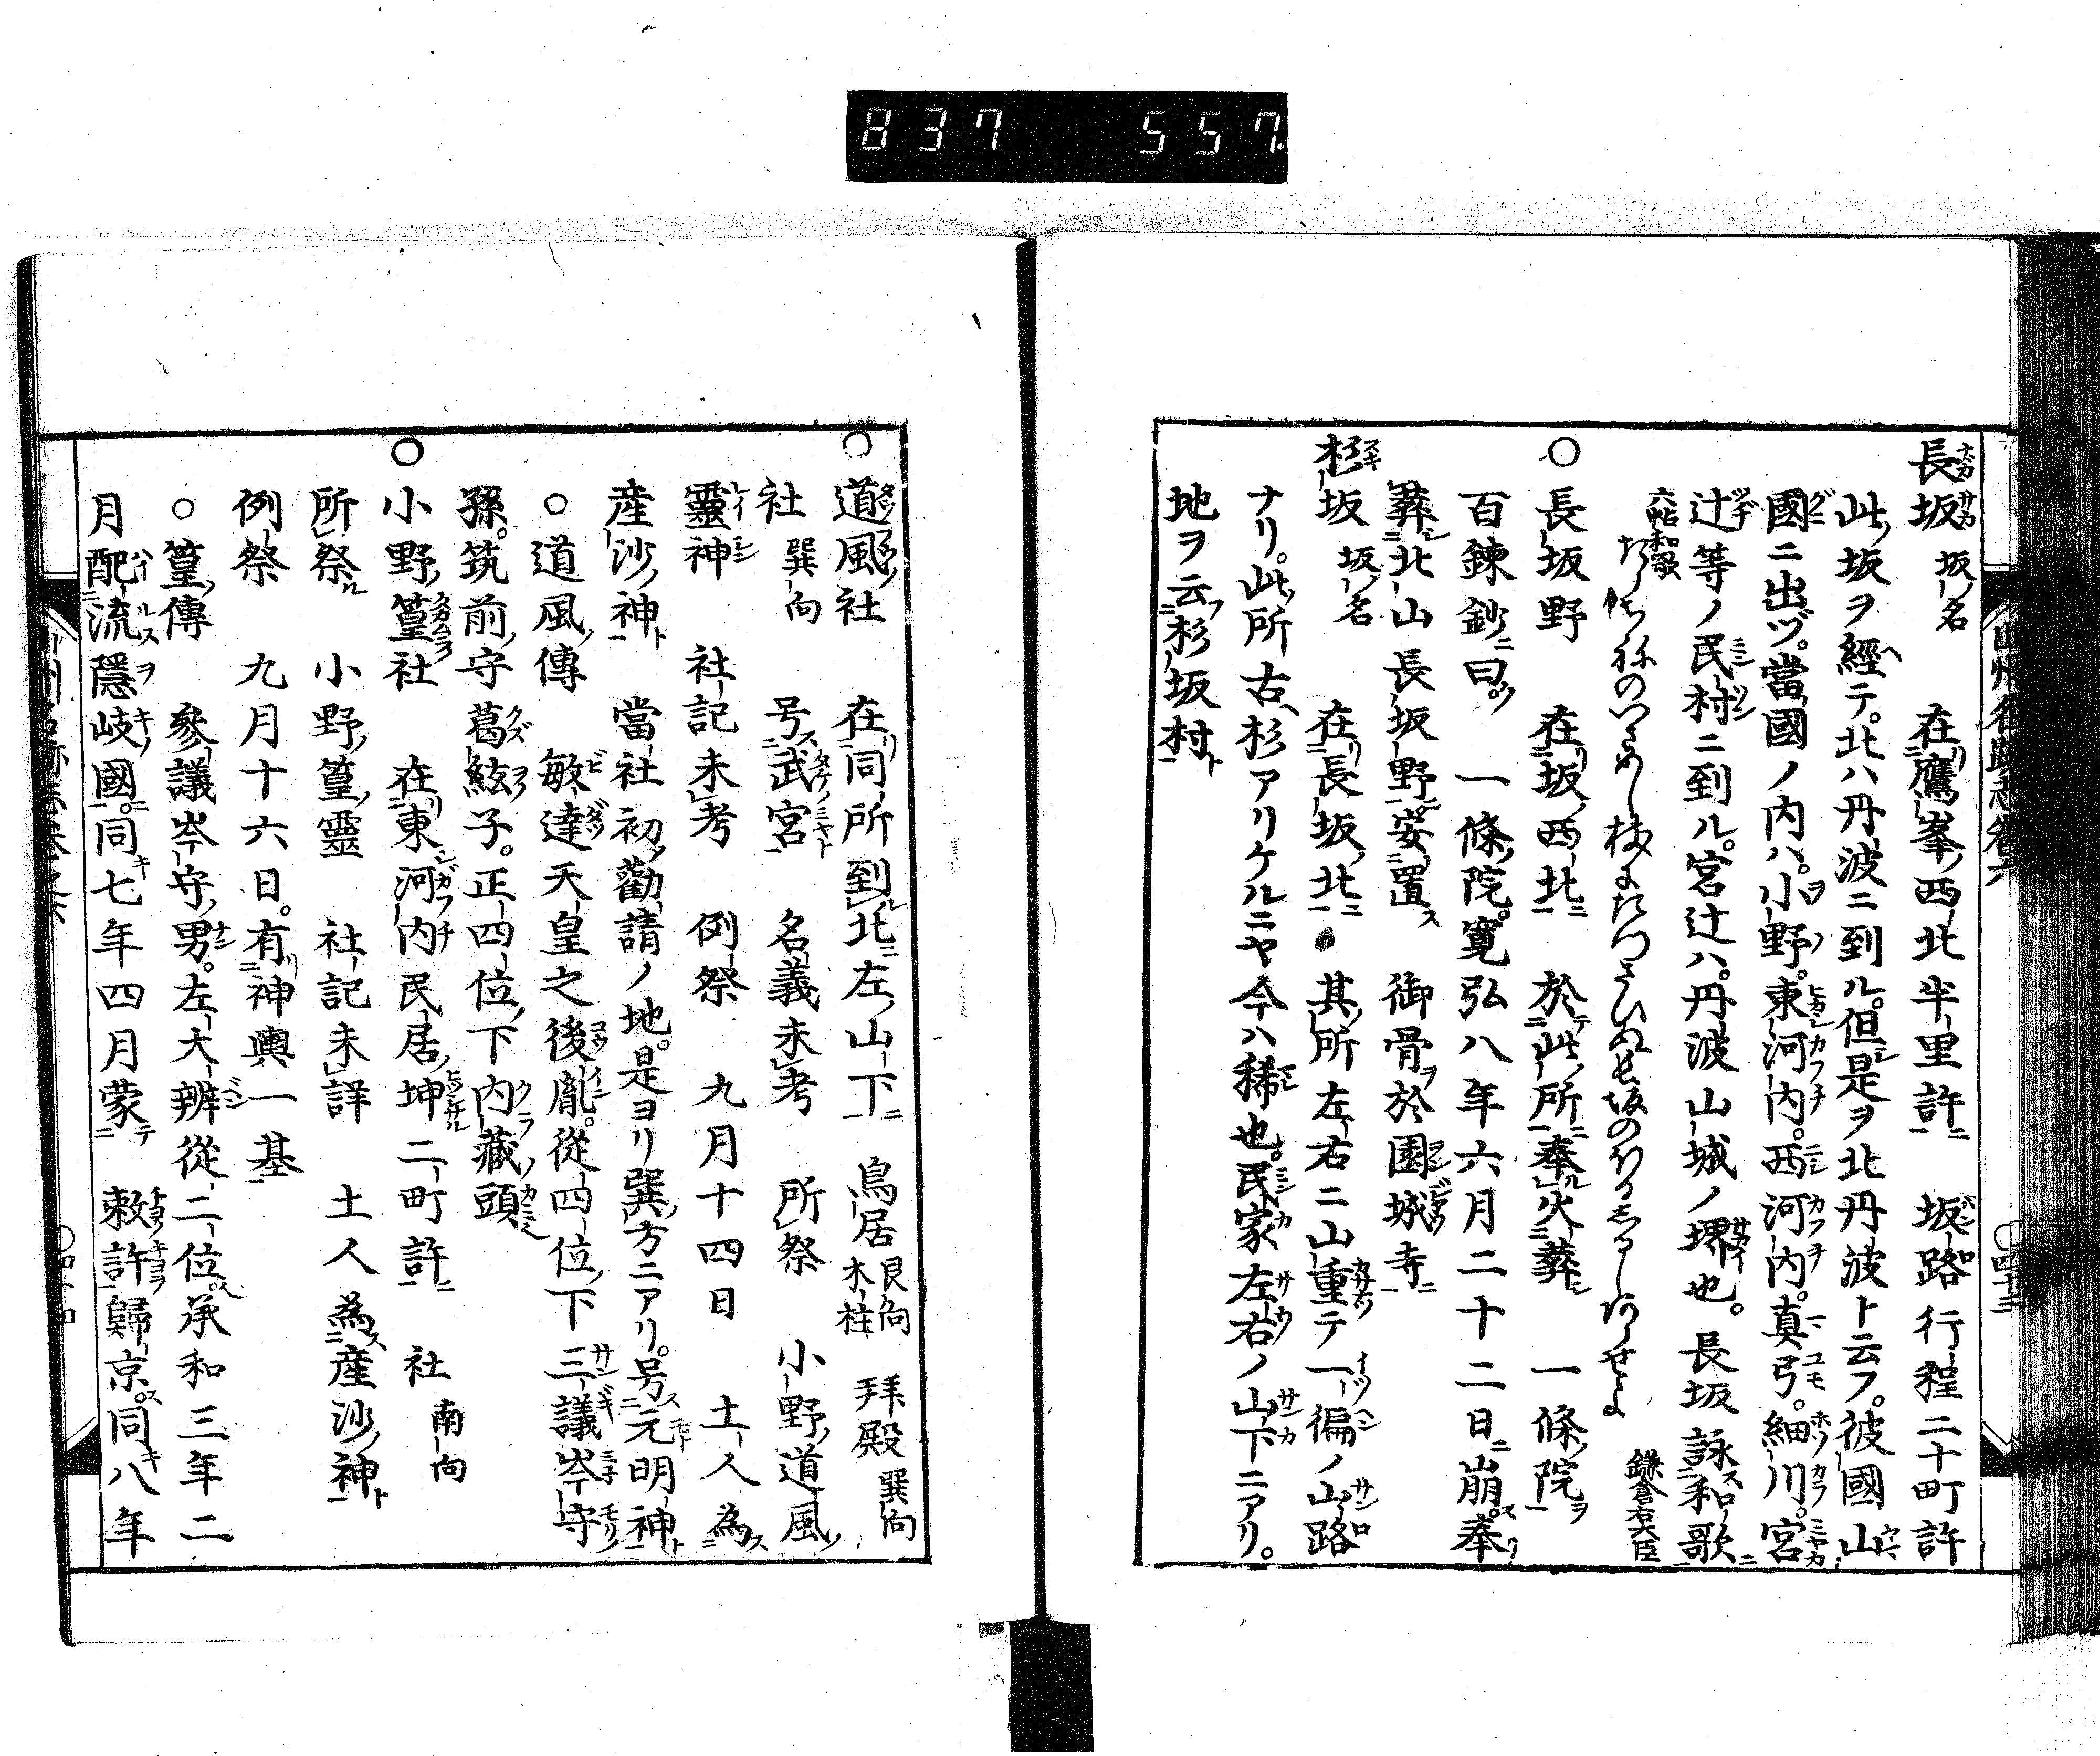 837 557
長坂 坂ノ名 在鷹峯西北半里許 坂路行程二十町許
此坂ヲ經テ北ハ丹波ニ到ル。但是ヲ北丹波ト云フ。彼國山
國ニ出ヅ。當國ノ内ハ。小野。東河内。西河内。真弓。細川。宮
辻等ノ民村ニ到ル。宮辻ハ。丹波山城ノ堺也。長坂詠和歌
六帖和歌
鎌倉右大臣
○長坂野 在坂西北 於此所奉火葬 一條院
百錬鈔曰 一條院寛弘八年六月二十二日崩奉
葬北山長坂野安置 御骨於園城寺
杉坂 坂ノ名 在長坂北 其所左右ニ山重テ一徧ノ山路
ナリ。此所古杉アリケルニヤ今ハ稀也。民家左右ノ山下ニアリ。
地ヲ云杉坂村
○道風社 在同所到北左山下 鳥居 艮向 木柱 拜殿 巽向
社 巽向 号武宮 名義未考 所祭 小野道風
靈神 社記未考 例祭 九月十四日 土人為
産沙神 當社初勸請ノ地。是ヨリ巽方ニアリ。号元明神
○道風傳 敏達天皇之後胤。從四位下三議岑守
孫。筑前守葛絃子。正四位下内藏頭
○小野篁社 在東河内民居坤二町許 社 南向
所祭 小野篁靈 社記未詳 土人為産沙神
例祭 九月十六日。有神輿一基
○篁傳 參議岑守男。左大辨從二位。承和三年二
月配流隱岐國。同七年四月蒙 敕許歸京。同八年